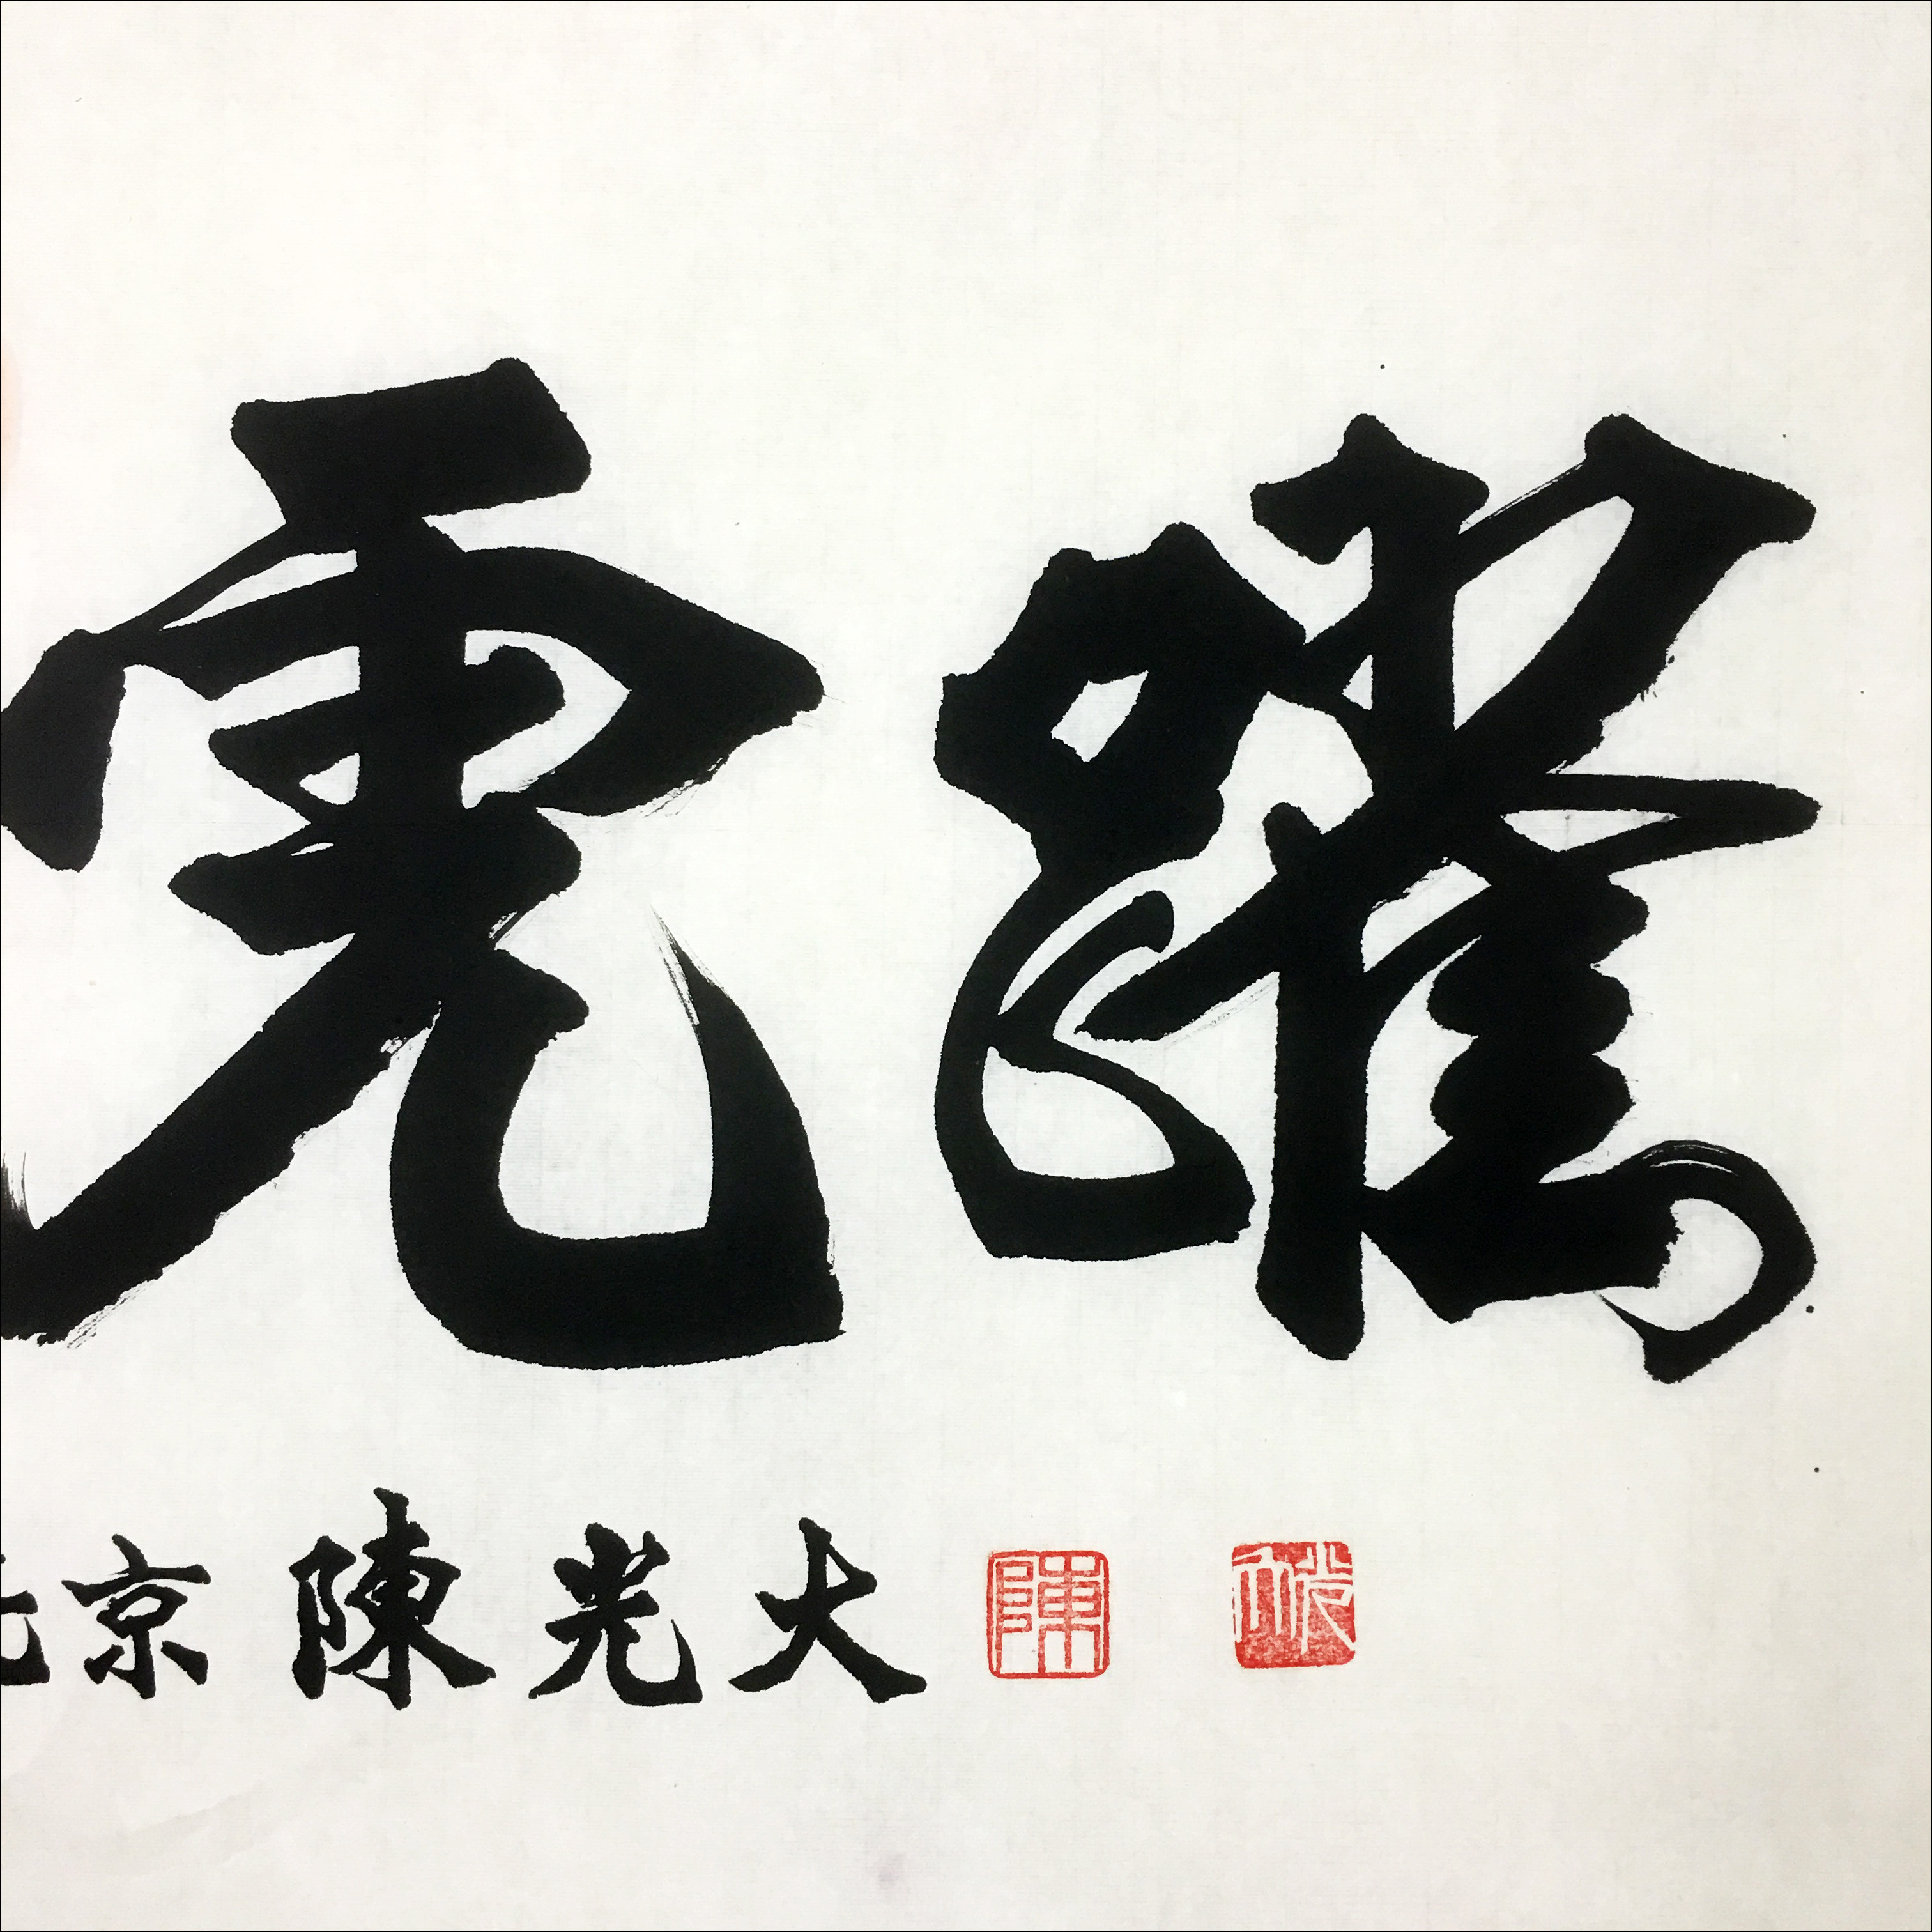 虎躍
北京 陳光大
陳